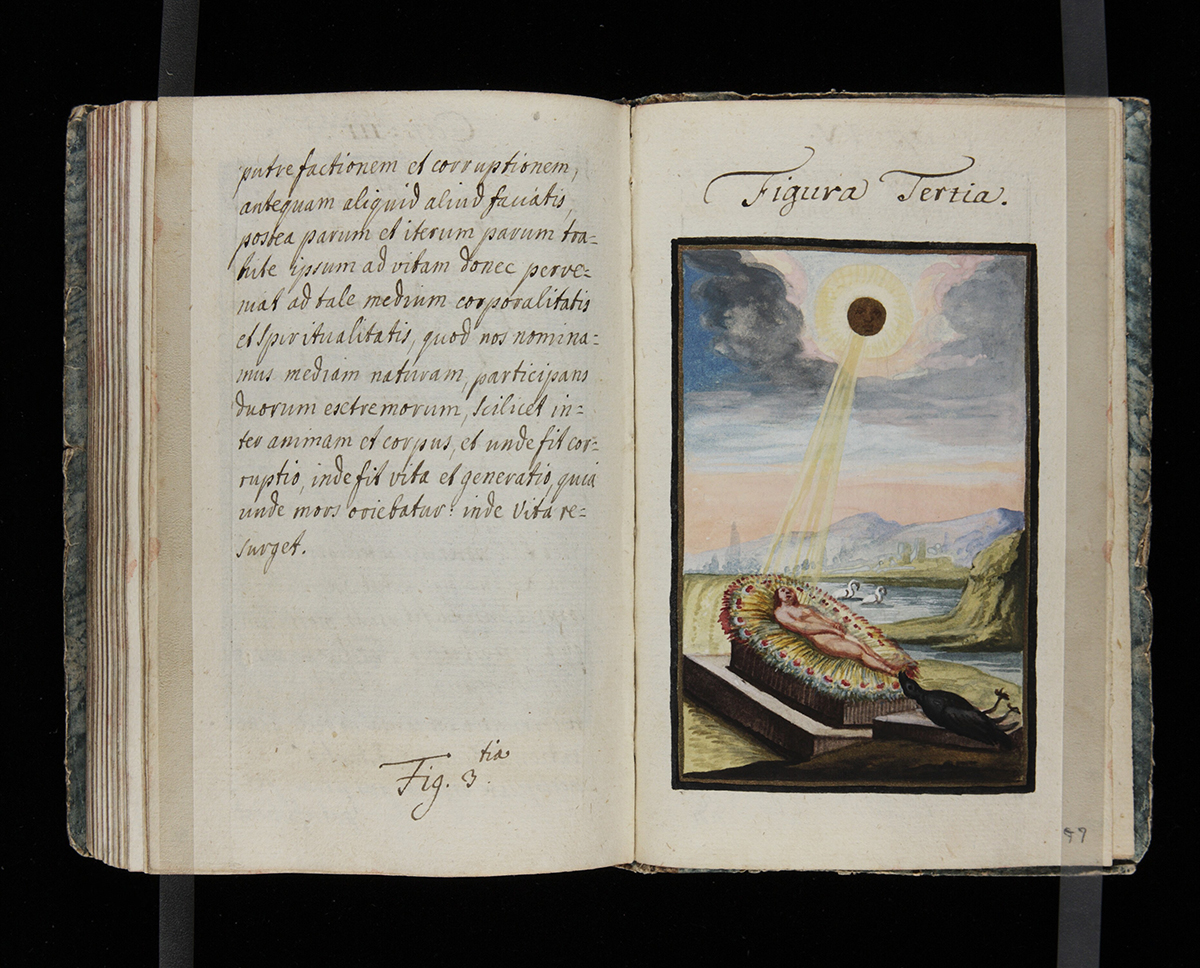 putrefactionem et corruptionem,
antequam aliquid aliud faciatis,
postea parum et iterum parum tra=
hite ipsum ad vitam donec perve=
niat ad tale medium corporalitatis
et Spiritualitatis, quod nos nomina=
mus mediam naturam, participans
duorum esctremorum, Scilicet in=
ter animam et corpus, et unde fit cor=
ruptio, inde fit vita et generatio, quia
unde mors oriebatur: inde Vita re=
surget.
Fig. 3.tia
Figura Tertia.